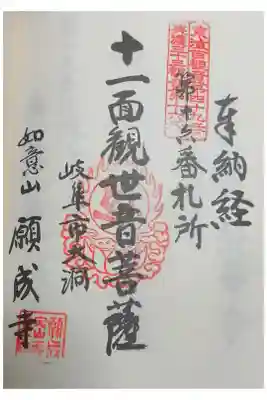 奉納経
第十六番札所
十一面観世音菩薩
岐阜市大洞
如意山 願成寺